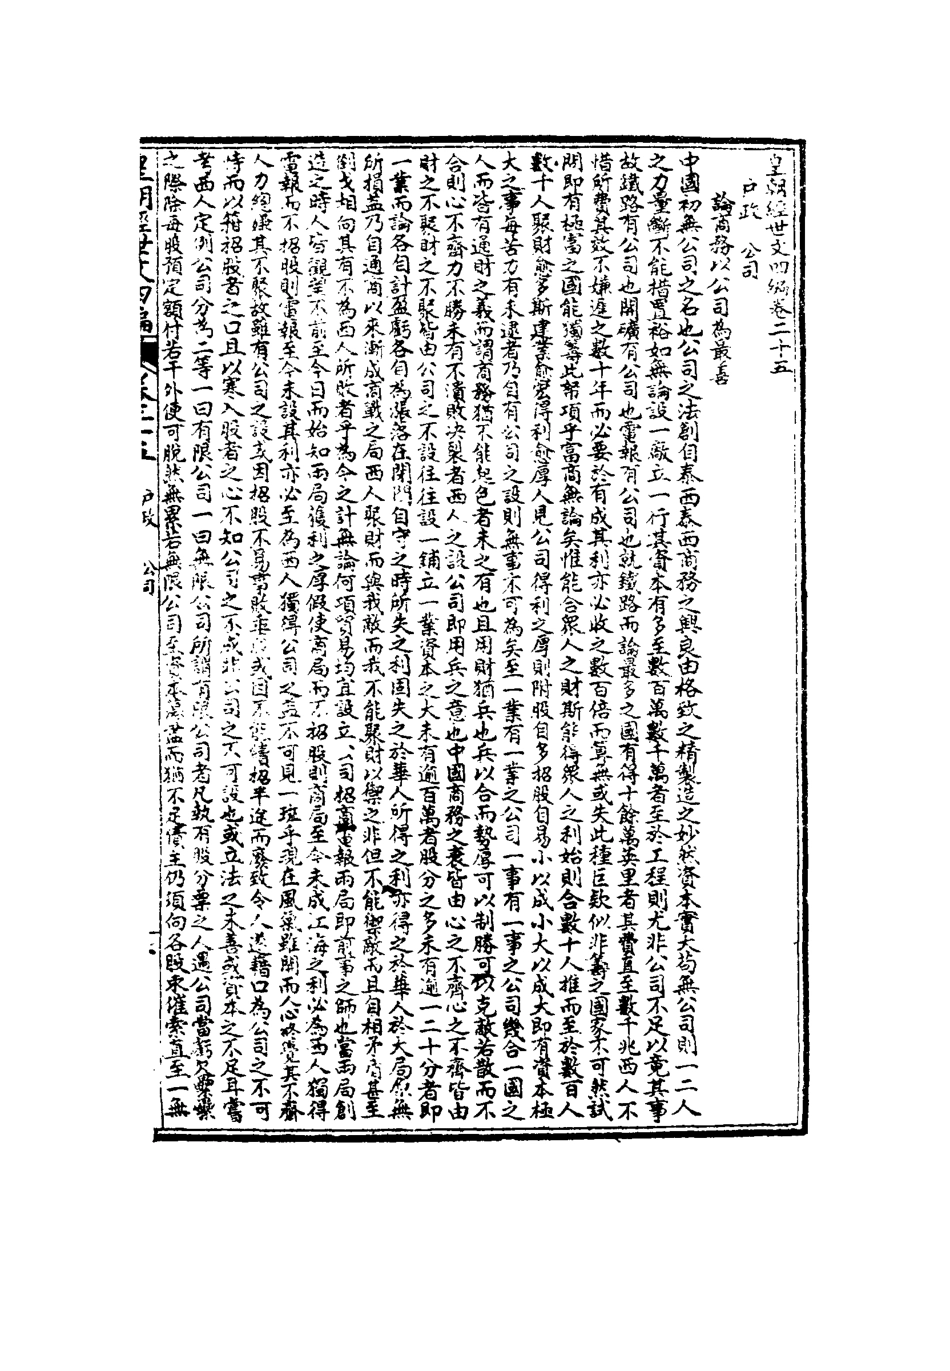 皇朝經世文四編卷二十五
戶政　公司
論商務以公司為最善
中國初無公司之名也公司之法創自泰西泰西商務之興良由格致之精製造之妙然資本實大苟無公司則一二人
之力量斷不能措置裕如無論設一廠立一行其資本有多至數百萬數千萬者至於工程則尤非公司不足以竟其事
故鐵路有公司也開礦有公司也電報有公司也就鐵路而論最多之國有得十餘萬英里者其費直至數千兆西人不
惜所費其效不嫌遲之數十年而必要於有成其利亦必收之數百倍而算無或失此種巨欵似非籌之國家不可然試
問即有極富之國能獨籌此帑項乎富商無論矣惟能合眾人之財斯能得眾人之利始則合數十人推而至於數百人
數千人聚財愈多斯建業愈宏得利愈厚人見公司得利之厚則附股自多招股自易小以成小大以成大即有資本極
大之事每苦力有未逮者乃自有公司之設則無事不可為矣至一業有一業之公司一事有一事之公司幾合一國之
人而皆有通財之義而謂商務猶不能起色者未之有也且用財猶兵也兵以合而勢厚可以制勝可以克敵若散而不
合則心不齊力不勝未有不潰敗決裂者西人之設公司即用兵之意也中國商務之衰皆由心之不齊心之不齊皆由
財之不聚財之不聚皆由公司之不設往往設一鋪立一業資本之大未有逾百萬者股分之多未有逾一二十分者即
一業而論各自計盈虧各自為漲落在閉關自守之時所失之利固失之於華人所得之利亦得之於華人於大局原無
所損益乃自通商以來漸成商戰之局西人聚財而與我敵而我不能聚財以禦之非但不能禦敵而且自相矛盾甚至
倒戈相向其有不為西人所敗者乎為今之計無論何項貿易均宜設立公司招商電報兩局即前事之師也當兩局創
造之時人皆觀望不前至今日而始知兩局獲利之厚假使商局而不招股則商局至今未成江海之利必為西人獨得
電報而不招股則電報至今未設其利亦必至為西人獨得公司之益不可見一斑乎現在風氣雖開而人心終覺其不齊
人力絕嫌其不聚故雖有公司之設或因招股不易事敗垂成或因不能續招半途而廢致令人遂藉口為公司之不可
恃而以箝招股者之口且以寒入股者之心不知公司之不成非公司之不可設也或立法之未善或資本之不足耳嘗
考西人定例公司分為二等一曰有限公司一曰無限公司所謂有限公司者凡執有股分票之人遇公司當虧欠纍纍
之際除每股預定額付若干外便可脫然無累若無限公司至資本蕩盡而猶不足債主仍須向各股東催索直至一無
皇朝經世文四編　卷二十五　戶政　公司　一